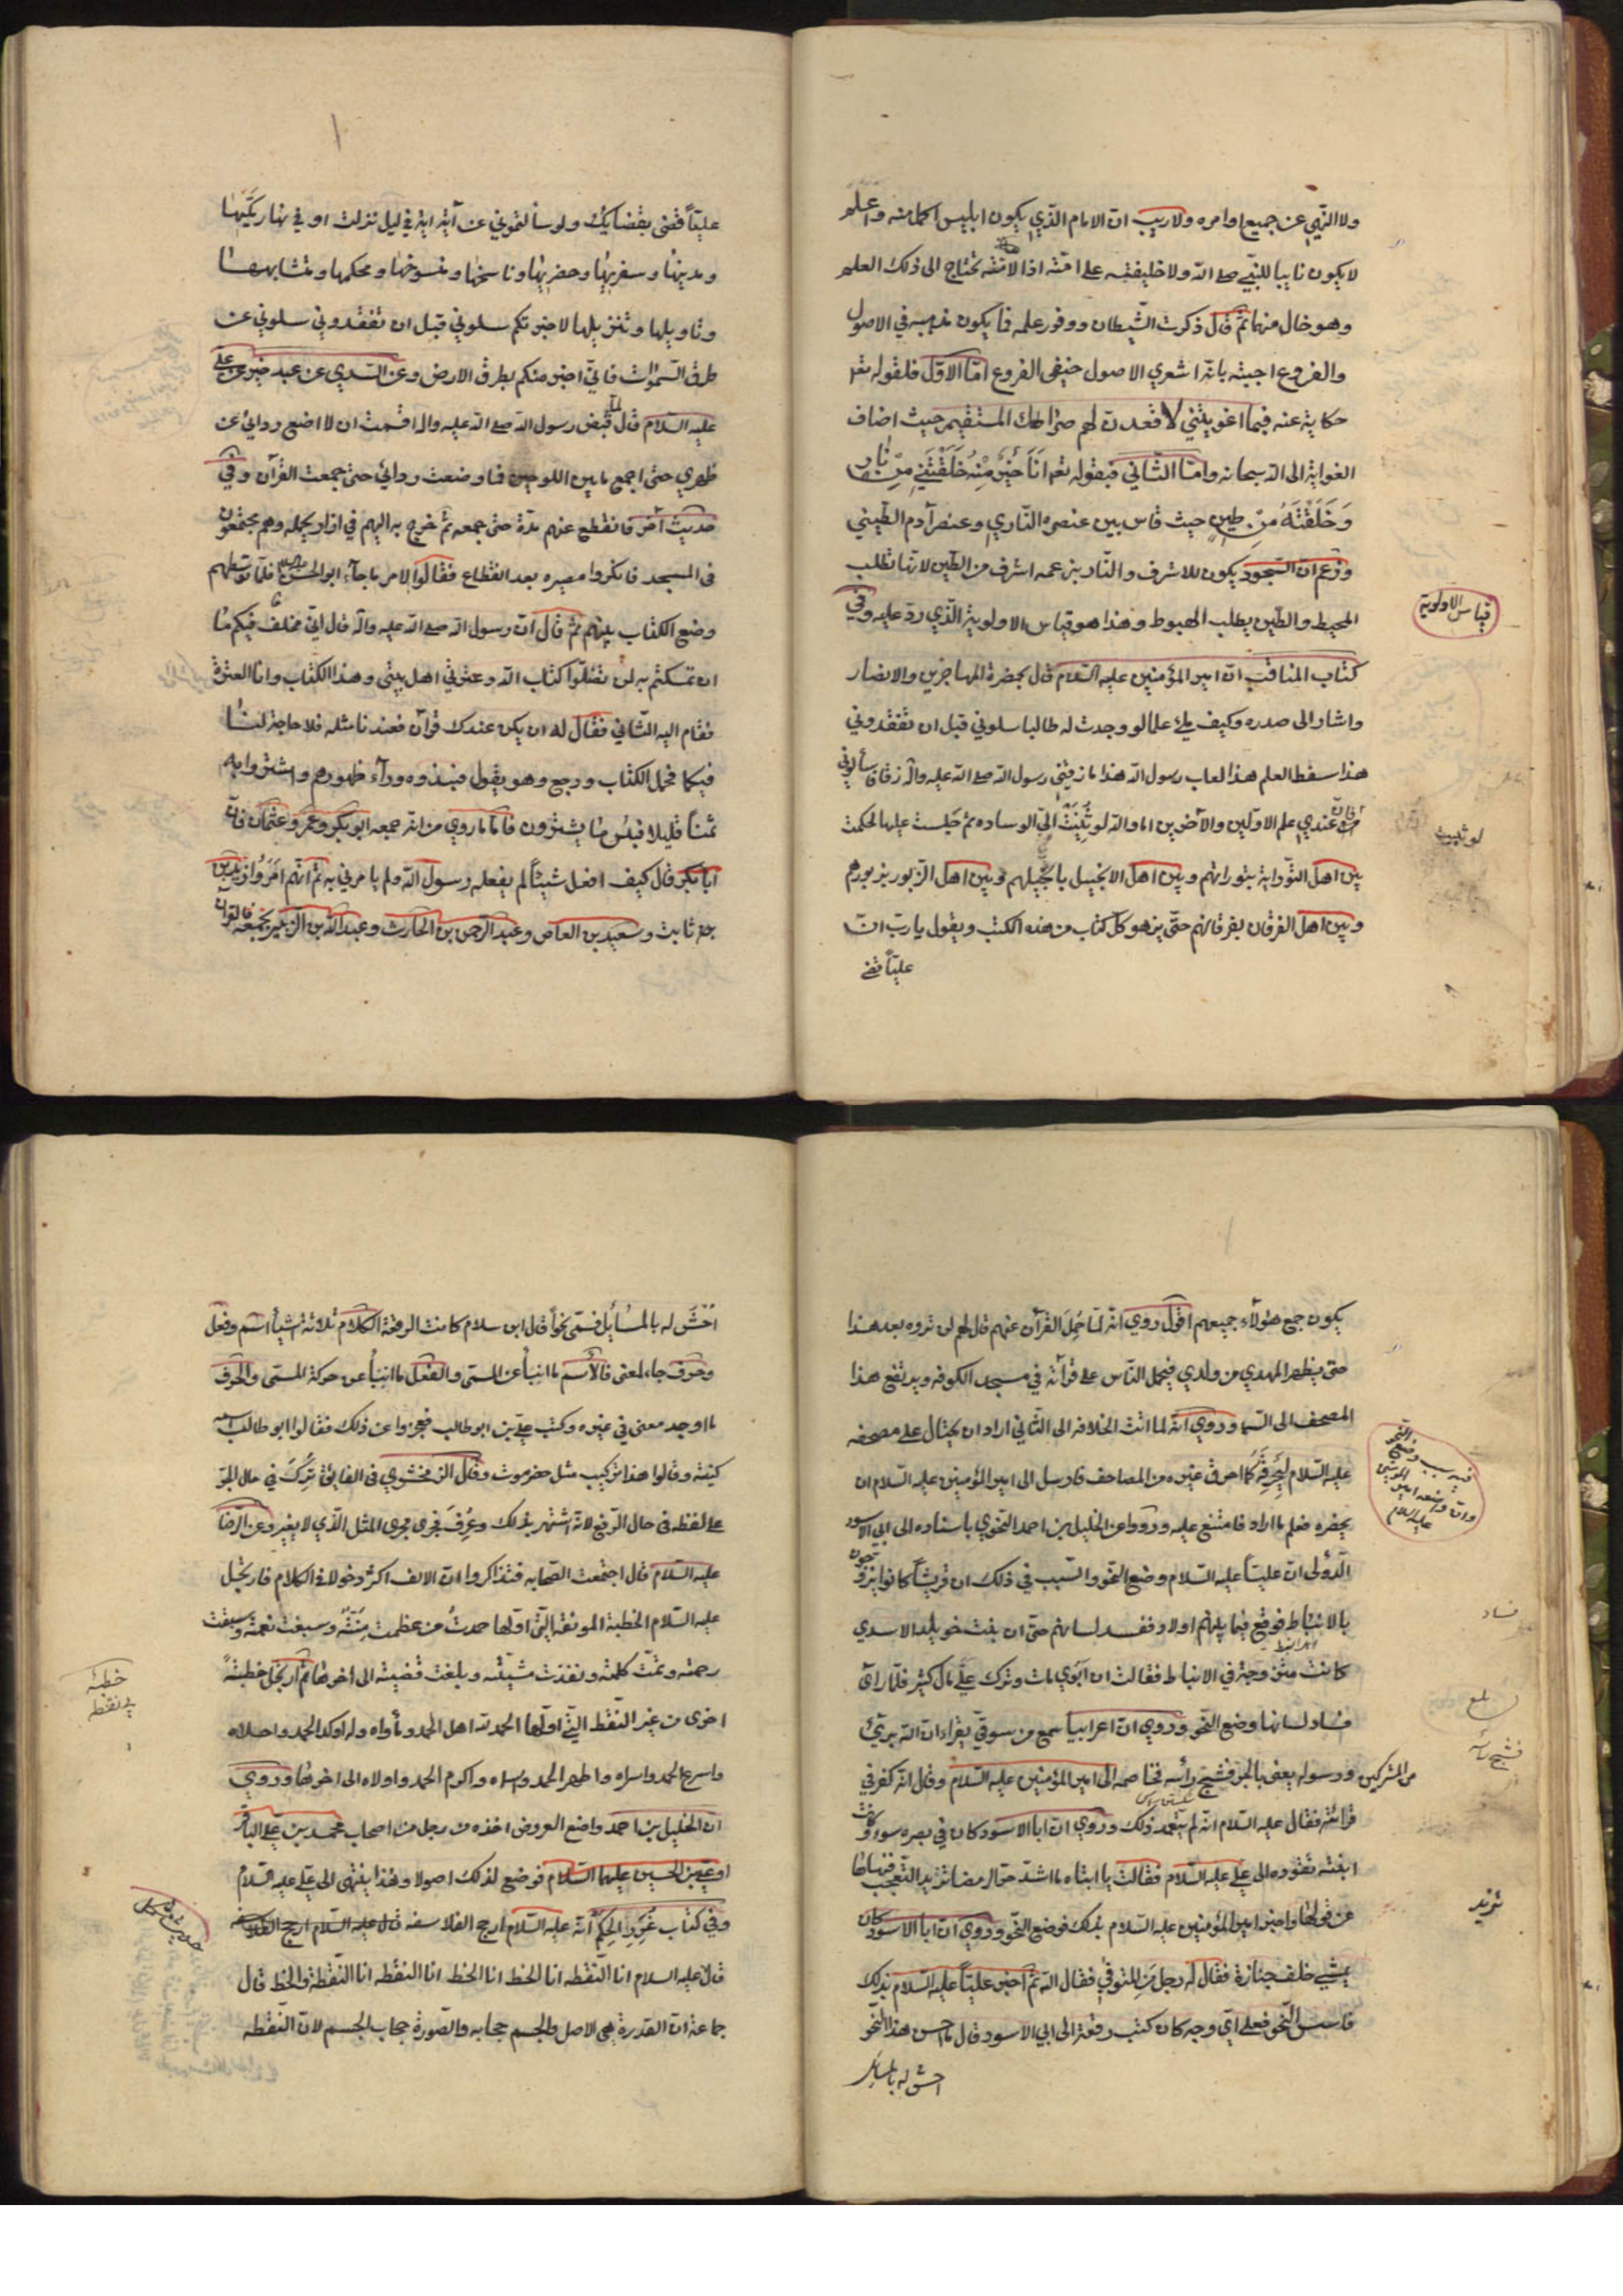 ولا النهي عن جميع اوامره ولا ريب ان الامام الذي يكون ابليس اكمل منه واعلم
لا يكون نايبا للنبي صلى الله ولا خليفته على امته اذ الامة تحتاج الى ذلك العلم
وهو خال منها ثم قال ذكرت الشيطان ووفور علمه فما يكون مذهبه في الاصول
والفروع اجبته بانه اشعري الاصول حنفي الفروع امّا الاوّل فلقوله تعم
حكاية عنه فيما اغويتني لاقعدن لهم صراطك المستقيم حيث اضاف
الغواية الى الله سبحانه وامّا الثّاني فبقوله تعم اَنَا خَيْرٌ مِنْهُ خَلَقْتَنِي مِنْ نارٍ
وَخَلَقْتَهُ مِنْ طينٍ حيث قاس بين عنصره النّاري وعنصر آدم الطّيني
وزعم ان السّجود يكون للاشرف والنّار بزعمه اشرف من الطّين لانها تطلب
المحيط والطّين يطلب الهبوط وهذا هو قياس الاولوية الّذي ردّ عليه وفي
قياس الاولوية
كتاب المناقب ان امير المؤمنين عليه السّلام قال بحضرة المهاجرين والانصار
واشار الى صدره وكيف ملئ علما لو وجدت له طالبا سلوني قبل ان تفقدوني
هذا سفط العلم هذا لعاب رسول الله هذا ما زقّني رسول الله صلى الله عليه واله زقا فاسألوني
فان عندي علم الاولين والآخرين اما والله لو ثُنِيَتْ لي الوساده ثم جلست عليها لحكمت
لو ثنيت
بين اهل التّوراية بتوراتهم وبين اهل الانجيل بانجيلهم وبين اهل الزبور بزبورهم
وبين اهل الفرقان بفرقانهم حتّى يزهو كل كتاب من هذه الكتب ويقول يا رب ان
عليّاً قضى
عليّاً قضى بقضايك ولو سألتموني عن آية آية في ليل نزلت او في نهار مكّيّها
ومدينها وسفريها وحضريها وناسخها ومنسوخها ومحكمها ومتشابهها
وتاويلها وتنزيلها لاخبرتكم سلوني قبل ان تفقدوني سلوني عن
طرق السّموات فانّي اخبر منكم بطرق الارض وعن السّدي عن عبد خير عن علي
عليه السّلام قال لما قبض رسول الله صلى الله عليه واله اقسمت ان لا اضع ردائي عن
ظهري حتى اجمع ما بين اللوحين فما وضعت ردائي حتى جمعت القرآن وفي
حديث آخر فانقطع عنهم مدّة حتى جمعه ثمّ خرج به اليهم في ازار يحمله وهم مجتمعون
في المسجد فانكروا مصيره بعد انقطاع فقالوا لامر ما جاء ابو الحسن فلمّا توسّطهم
وضع الكتاب بينهم ثمّ قال ان رسول الله صلى الله عليه واله قال انّي مخلف فيكم ما
ان تمسكتم به لن تضلّوا كتاب الله وعترتي اهل بيتي وهذا الكتاب وانا العترة
فقام اليه الثّاني فقال له ان يكن عندك قرآن فعندنا مثله فلا حاجة لنا
فيكما فحمل الكتاب ورجع وهو يقول فنبذوه ورآء ظهورهم واشتروا به
ثمناً قليلا فبئس ما يشترون فاما ما روي من انّه جمعه ابو بكر وعمر وعثمان فانّ
ابا بكر قال كيف افعل شيئاً لم يفعله رسول الله ولم يامرني به ثمّ انّهم اَمَرُوا زيد بن
ثابت وسعيد بن العاص وعبد الرحمن بن الحارث وعبد الله بن الزبير بجمعه فالقرآن
يكون جمع هؤلآء جميعهم اقول روي انّه لمّا حُمِلَ القرآن عنهم قال لهم لن تروه بعد هذا
حتى يظهر المهدي من ولدي فيحمل النّاس على قرآنه في مسجد الكوفه ويرتفع هذا
المصحف الى السّما وروي انّه لما اتت الخلافه الى الثّاني اراد ان يحتال على مصحفه
عليه السّلام لِيُحْرِقَهُ كما احرق غيره من المصاحف فارسل الى امير المؤمنين عليه السّلام ان
يحضره فعلم ما اراد فامتنع عليه ورووا عن الخليل بن احمد النّحوي باسناده الى ابي الاسود
فيه سبب وضع النّحو
وانّ واضعه امير المؤمنين
عليه السلام
الدّؤلى انّ عليّاً عليه السّلام وضع النّحو والسّبب في ذلك ان قريشاً كانوا يتزوّجون
بالانباط فوقع فيما بينهم اولاد ففسد لسانهم حتى ان بنت خويلد الاسدي
فساد
كانت متزوجة في الانباط فقالت ان ابوي مات وترك عليّ مال كثير فلمّا راى
فساد لسانها وضع النّحو وروي انّ اعرابيا سمع من سوقيّ يقراء ان الله برئ
من المشركين ورسوله يعنى بالجرّ فشجّ رأسه فخاصمه الى امير المؤمنين عليه السّلام وقال انّه كفر في
فشجّ رأسه
قرائته فقال عليه السّلام انّه لم يتعمد ذلك وروي انّ ابا الاسود كان في بصره سوء وكانت
ابنته تقوده الى عليّ عليه السّلام فقالت يا ابتاه ما اشدّ حرّ الرمضا تريد التعجّب فنهاها
تريد
عن قولها واخبر امير المؤمنين عليه السّلام بذلك فوضع النّحو وروي انّ ابا الاسود كان
يمشي خلف جنازة فقال له رجل مَنِ المتوفّي فقال الله ثم اخبر عليّاً عليه السّلام بذلك
فاسس النّحو فعلى ايّ وجه كان كتب رقعة الى ابي الاسود قال ما احسن هذا النّحو
احش له بالمسائل
اُحُشَ له بالمسائِل فسمّى نحواً قال ابن سلام كانت الرقعة الكلام ثلاثة اشيآء اسم وفعل
وحرف جاء لمعنى فالأسم ما انبأ عن المسمّى والفعل ما انبأ عن حركة المسمّى والحرف
ما اوجد معنى في غيره وكتب عليّ بن ابو طالب فعجزوا عن ذلك فقالوا ابو طالب اسمه
كنيته وقالوا هذا تركيب مثل حضرموت وقال الزمخشري في الفايق تُرِكَ في حال الجرّ
على لفظه في حال الرّفع لانّه اشتهر بذلك وعُرِفَ فجرى مجرى المثل الّذي لا يغير وعن الرّضا
عليه السّلام قال اجتمعت الصّحابه فتذاكروا انّ الالف اكثر دخولا في الكلام فارتجل
عليه السّلام الخطبة المونقة الّتي اوّلها حمدتُ من عظمت مِنَّتُهُ وسبغت نعمته وسبقت
رحمته وتمّت كلمته ونفذت مشيّته وبلغت قضيته الى آخرها ثمّ ارتجل خطبتهً
خطبه
بى نقطه
اخرى من غير النّقط الّتي اوّلها الحمد لله اهل الحمد ومأواه وله اوكد الحمد واحلاه
واسرع الحمد واسراه واطهر الحمد واسماه واكرم الحمد واولاه الى اخرها وروي
ان الخليل بن احمد واضع العروض اخذه من رجل من اصحاب محمد بن عليّ الباقر
او عليّ بن الحسين عليهما السّلام فوضع لذلك اصولا وهذا ينتهي الى عليّ عليه السّلام
وفي كتاب غُرَرِ الحِكَم انّه عليه السّلام ارجح الفلاسفه قال عليه السّلام ارجح الفلاسفه
قال عليه السلام انا النّقطه انا الخط انا الخط انا النقطه انا النّقطة والخط قال
جماعة انّ القدرة هي الاصل والجسم حجابه والصّورة حجاب الجسم لانّ النّقطه